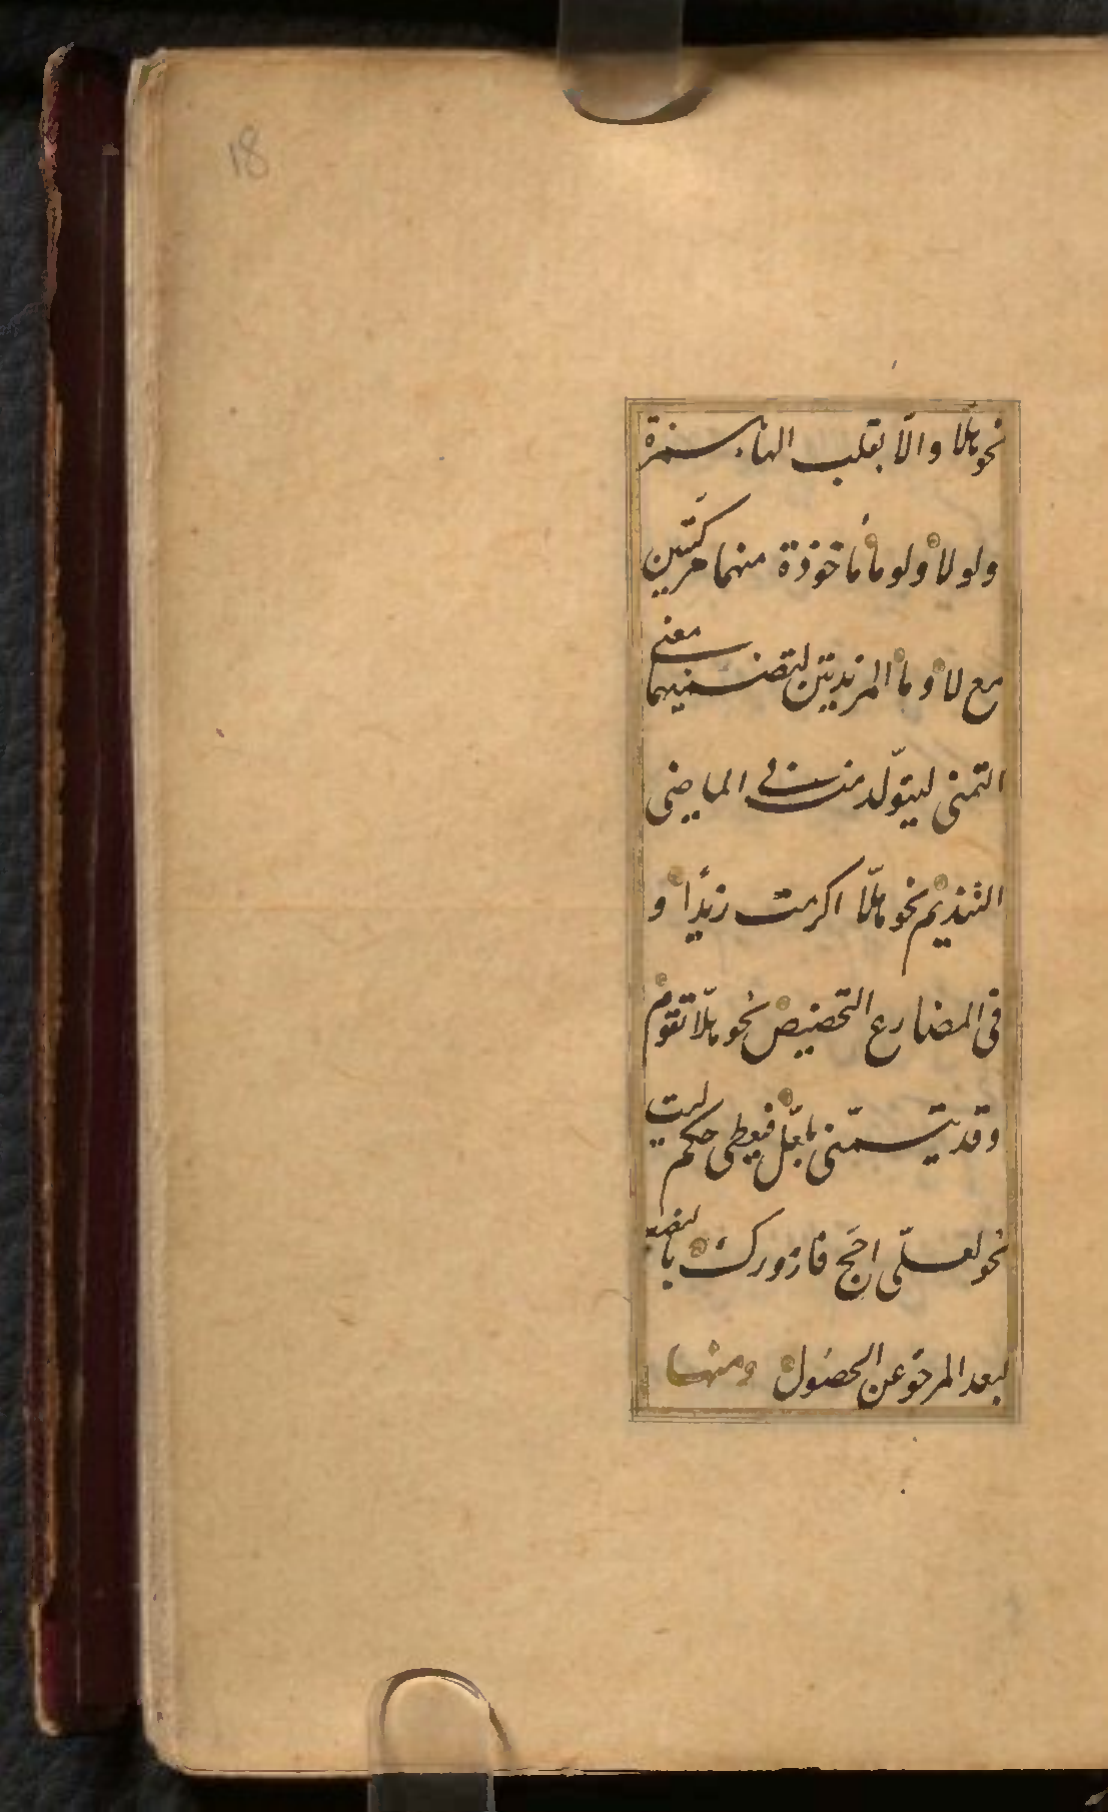 18
نحو هلّا والّا بقلب الهاء همزة
ولولا ولوما مأخوذة منهما مركّبتين
مع لا وما المزيدتين لتضمنيهما معنى
التمنى ليتولّد منه فى الماضى
التنديم نحو هلّا اكرمت زيدًا و
فى المضارع التحضيض نحو هلّا تقوم
وقد يتمنّى بلعلّ فيعطى حكم ليت
نحو لعلّى احَج فازورك بالنصب
لبعد المرجوّ عن الحصول ومنها